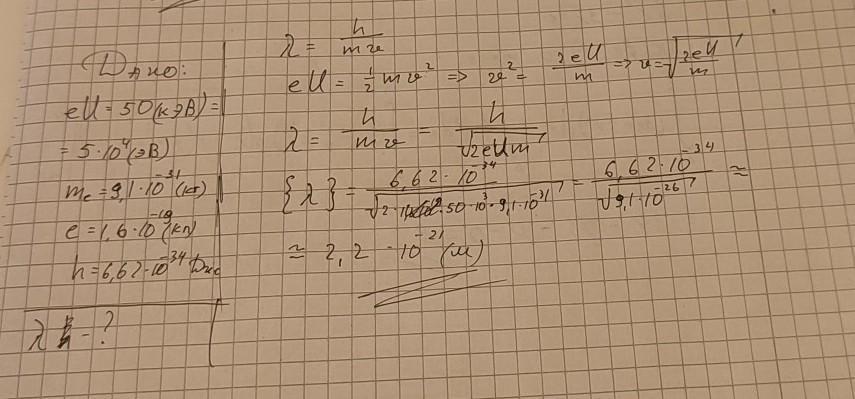 Дано:
eU = 50(кэВ) =
= 5·10⁴(эВ)
mₑ = 9,1·10⁻³¹(кг)
e = 1,6·10⁻¹⁹(Кл)
h = 6,62·10⁻³⁴ Дж·с
λ - ?
λ = h/mv
eU = 1/2 mv² => v² = 2eU/m => v = √(2eU/m)
λ = h/mv = h/√(2eUm)
{λ} = 6,62·10⁻³⁴/√(2·50·10³·9,1·10⁻³¹) = 6,62·10⁻³⁴/√(9,1·10⁻²⁶) ≈
≈ 2,2·10⁻²¹ (м)